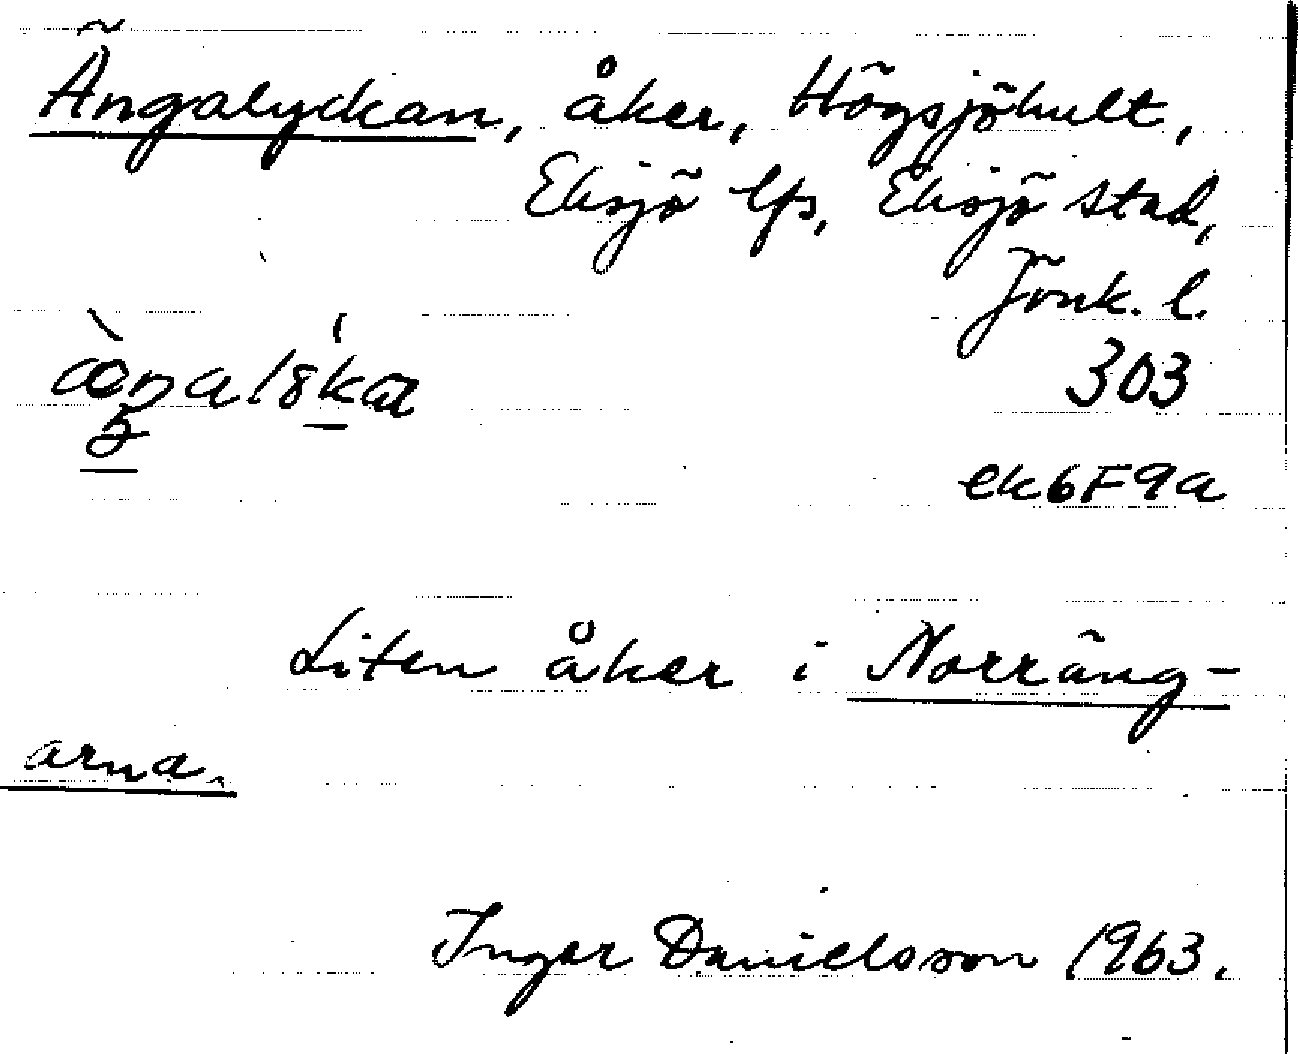 Ängalyckan, åker, Högsjöhult,
Eksjö lfs, Eksjö stad,
Jönk. l.
303
ek6F9a
Liten åker i Norräng-
arna.
Ingar Danielsson 1963.